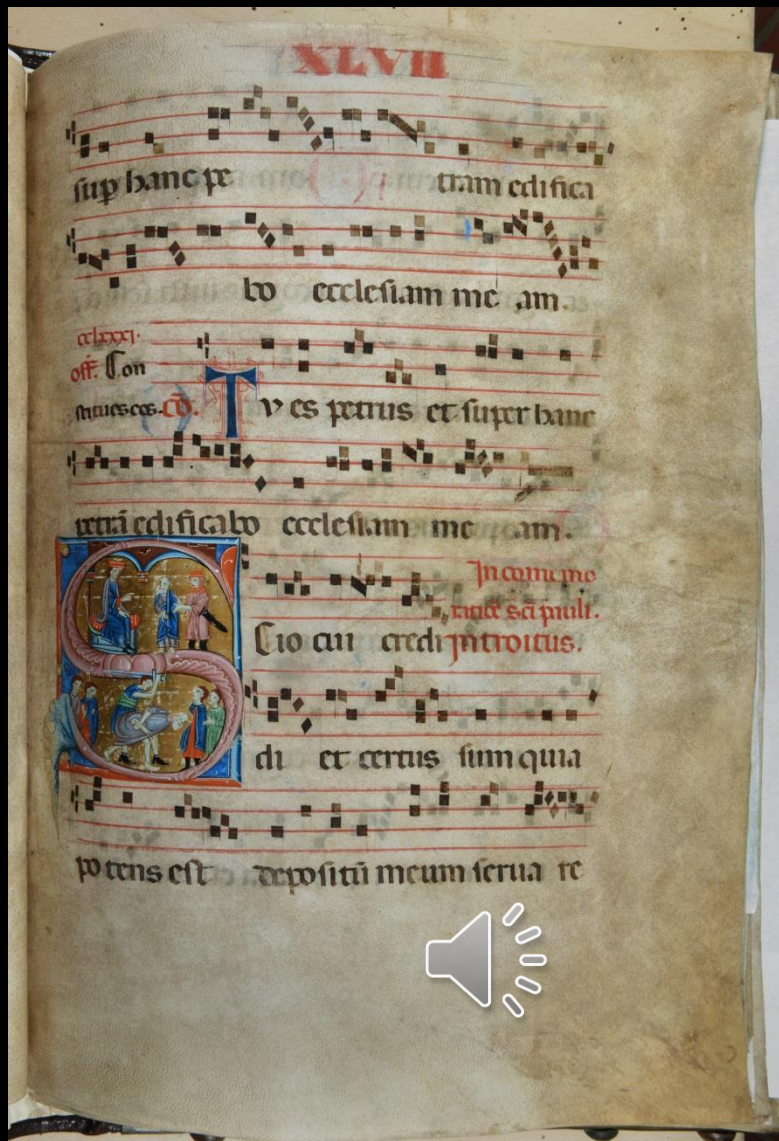 XLVII
sup hanc pe tram edifica
bo ecclesiam me am.
cclxxxi.
off. Con
stitues eos. co. Tu es petrus et super hanc
petrā edificabo ecclesiam me am.
In comemo
ratiōe sci pauli.
Scio cui credi introitus.
di et certus sum quia
po tens est depositū meum serua re